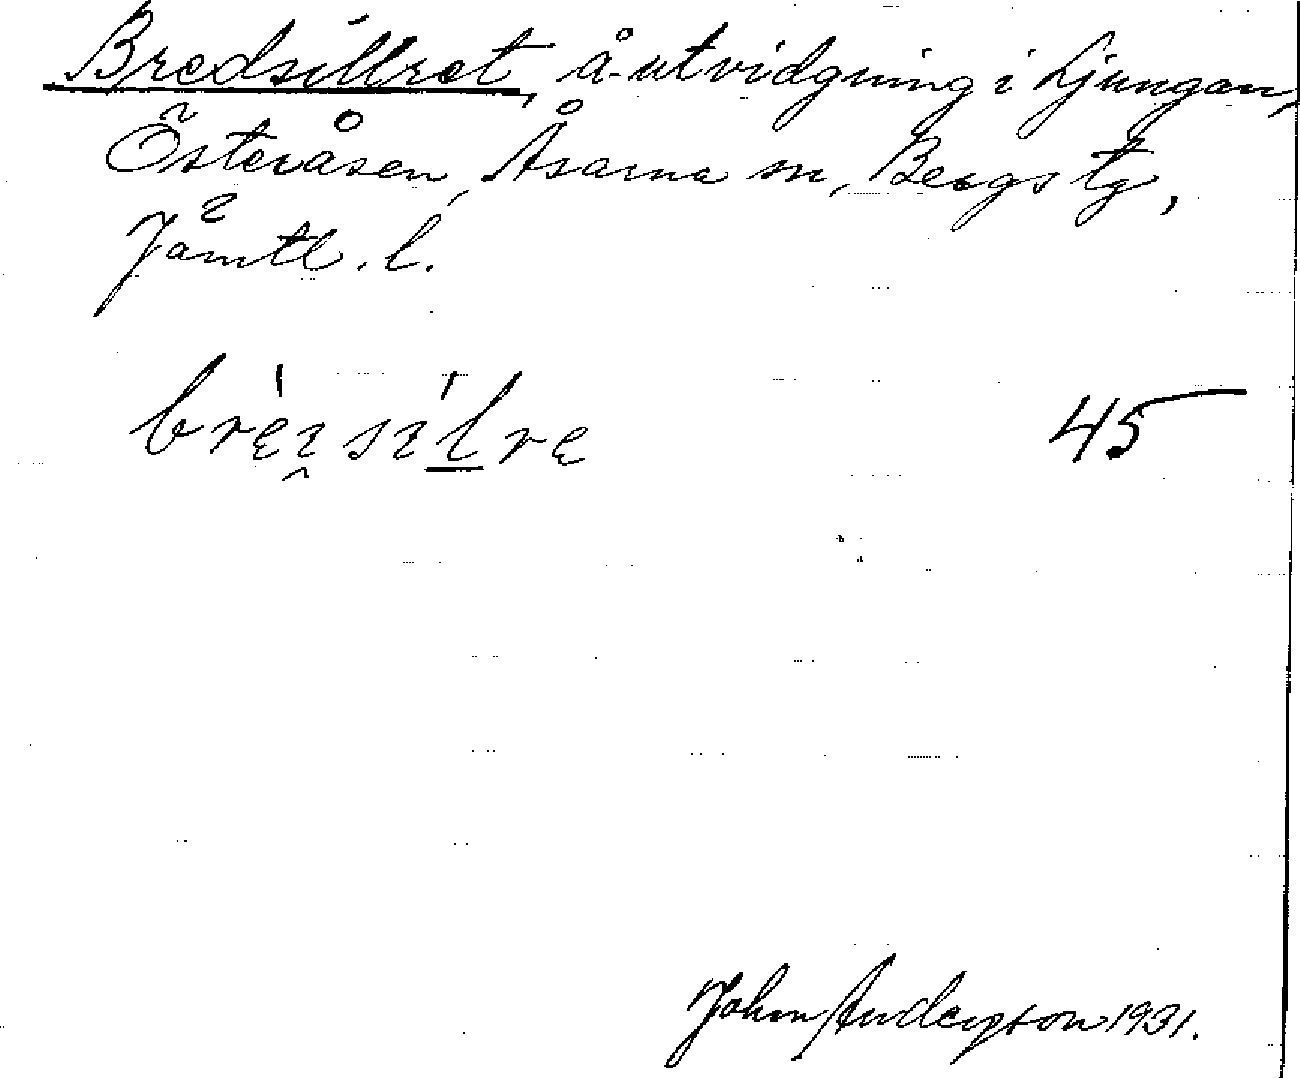 Bredsillret, å-utvidgning i Ljungan,
Österåsen, Åsarna sn, Bergs tg,
Jämtl. l.
45
John Andersson 1931.